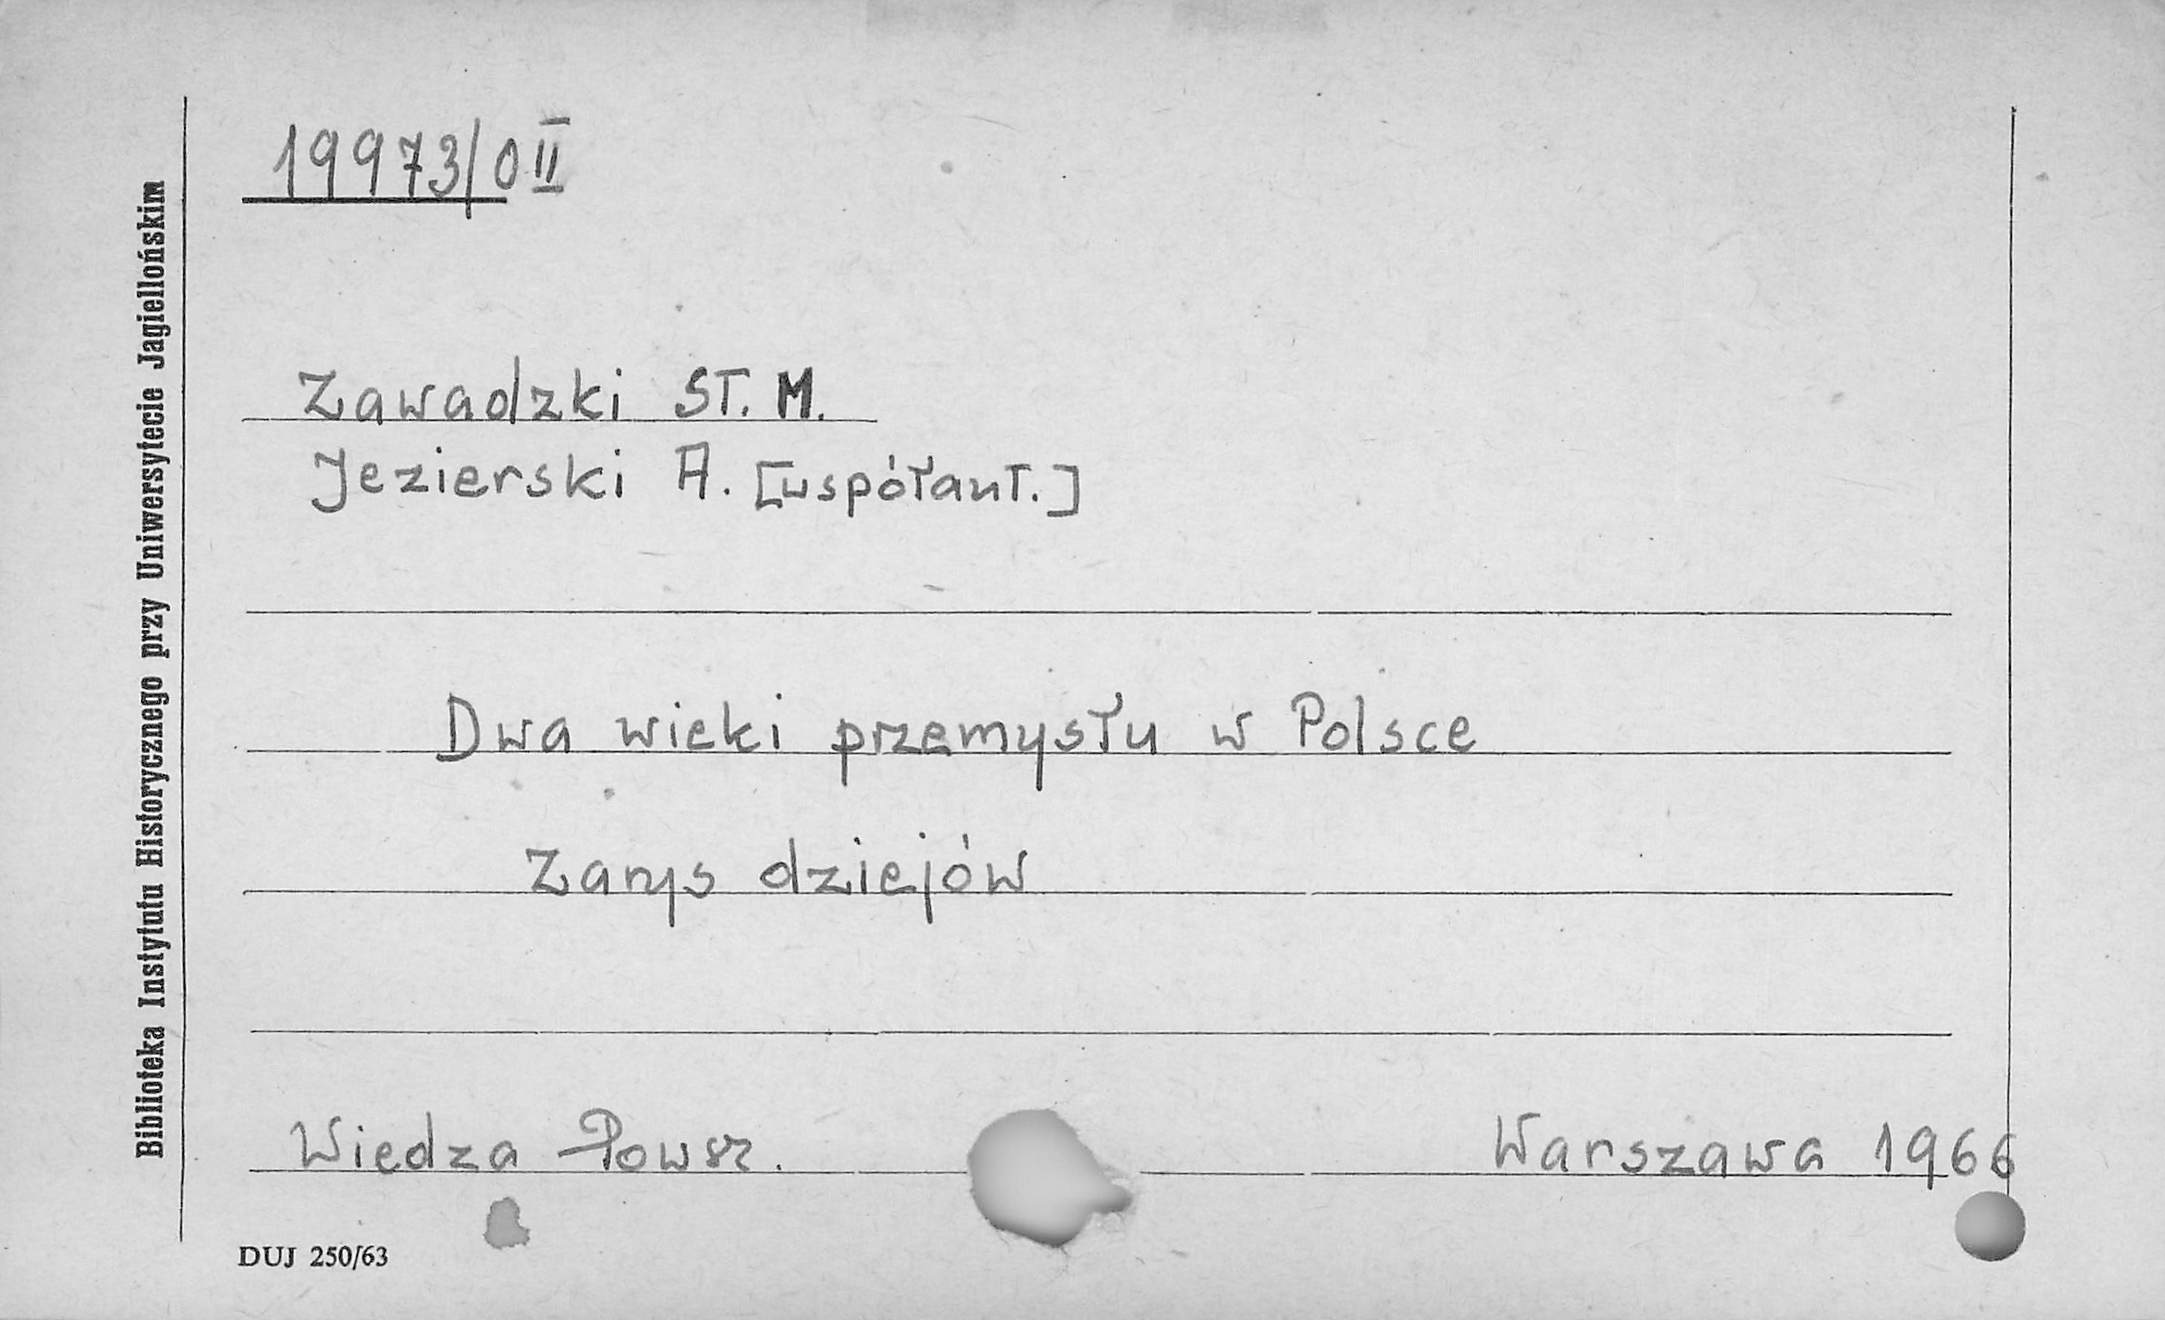 19973/0 II
Zawadzki ST. M.
Jezierski A. [współaut.]
Dwa wieki przemysłu w Polsce
Zarys dziejów
Wiedza Powsz.
Warszawa 1966
DUJ 250/63
Biblioteka Instytutu Historycznego przy Uniwersytecie Jagiellońskim